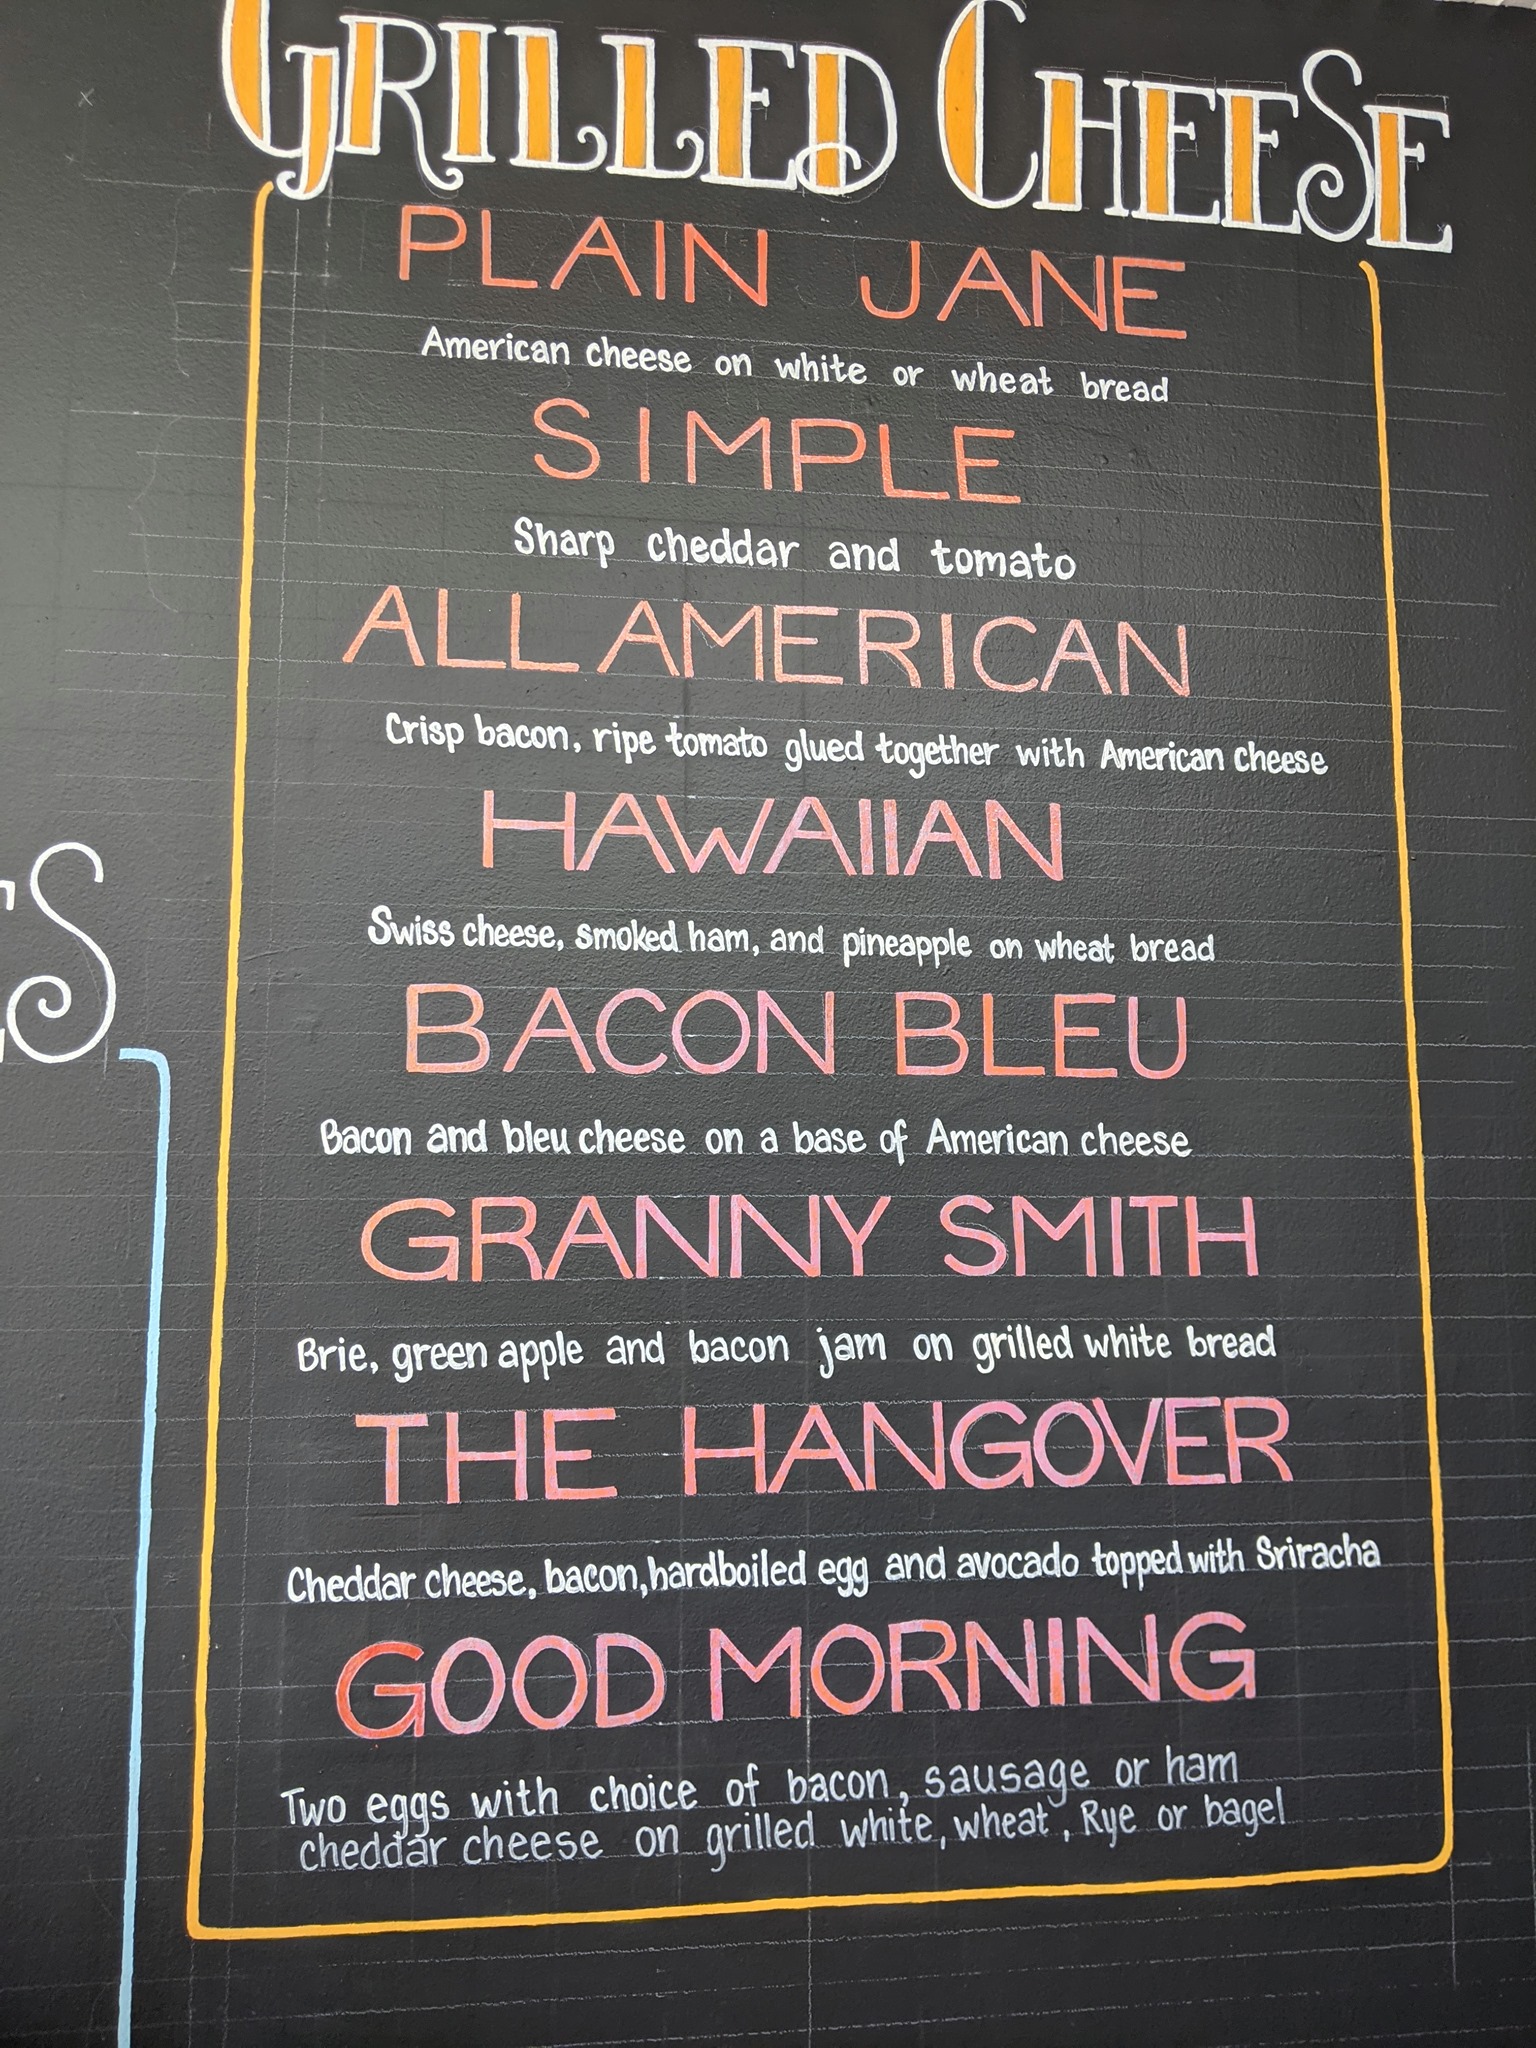 GRILLED CHEESE
PLAIN JANE
American cheese on white or wheat bread
SIMPLE
Sharp cheddar and tomato
ALL AMERICAN
Crisp bacon, ripe tomato glued together with American cheese
HAWAIIAN
Swiss cheese, smoked ham, and pineapple on wheat bread
BACON BLEU
Bacon and bleu cheese on a base of American cheese
GRANNY SMITH
Brie, green apple and bacon jam on grilled white bread
THE HANGOVER
Cheddar cheese, bacon, hardboiled egg and avocado topped with Sriracha
GOOD MORNING
Two eggs with choice of bacon, sausage or ham
cheddar cheese on grilled white, wheat, Rye or bagel